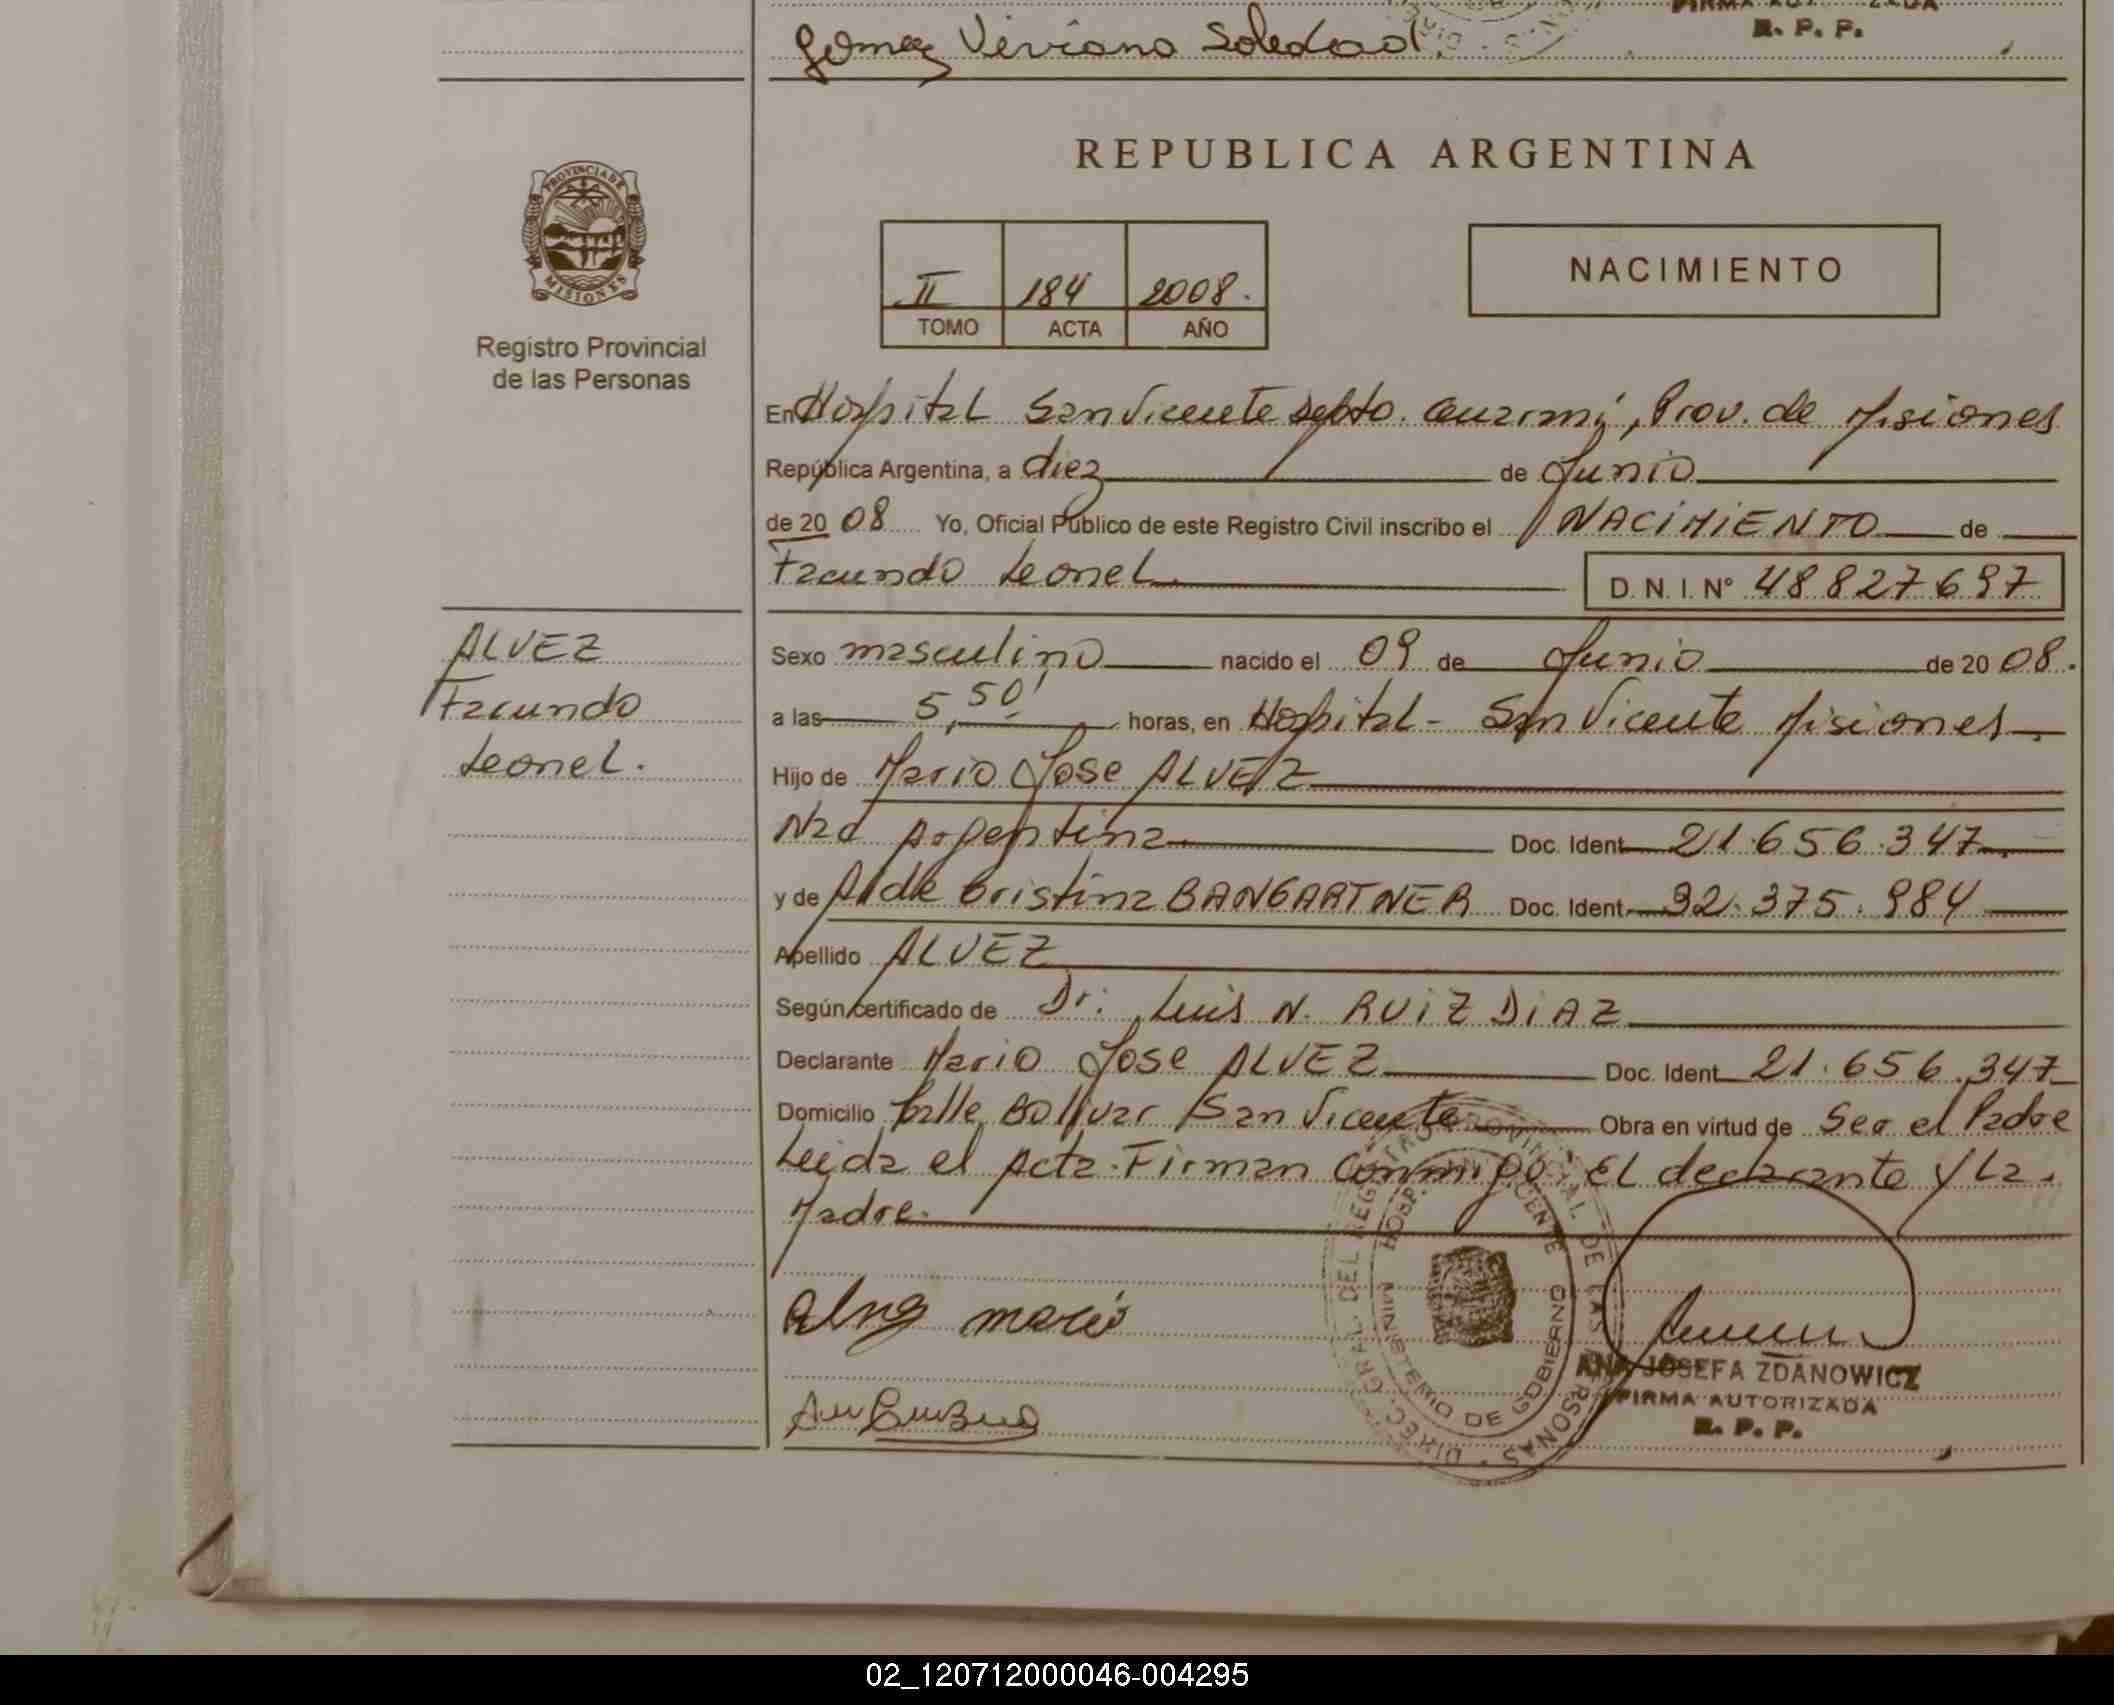 Gomez Viviana Soledad
R. P. P.
REPUBLICA ARGENTINA
PROVINCIA DE
MISIONES
Registro Provincial
de las Personas
II 184 2008.
TOMO ACTA AÑO
NACIMIENTO
En Hospital San Vicente Depto. Guaraní, Prov. de Misiones
República Argentina, a diez de Junio
de 20 08 Yo, Oficial Público de este Registro Civil inscribo el NACIMIENTO de
Facundo Leonel D. N. I. Nº 48827697
ALVEZ
Facundo
Leonel.
Sexo masculino nacido el 09 de Junio de 20 08.
a las 5,50' horas, en Hospital - San Vicente Misiones
Hijo de Mario Jose ALVEZ
Nac Argentina Doc. Ident. 21.656.347
y de Cristina BANGARTNER Doc. Ident. 32.375.984
Apellido ALVEZ
Según certificado de Dr. Luis N. RUIZ DIAZ
Declarante Mario Jose ALVEZ Doc. Ident. 21.656.347
Domicilio Calle Bolivar San Vicente Obra en virtud de Ser el Padre
Leida el Acta. Firman Conmigo El declarante y La
Madre.
DIREC. GRAL. DEL REGISTRO PROVINCIAL DE LAS PERSONAS
MINISTERIO DE GOBIERNO
ANA JOSEFA ZDANOWICZ
FIRMA AUTORIZADA
R. P. P.
02_120712000046-004295